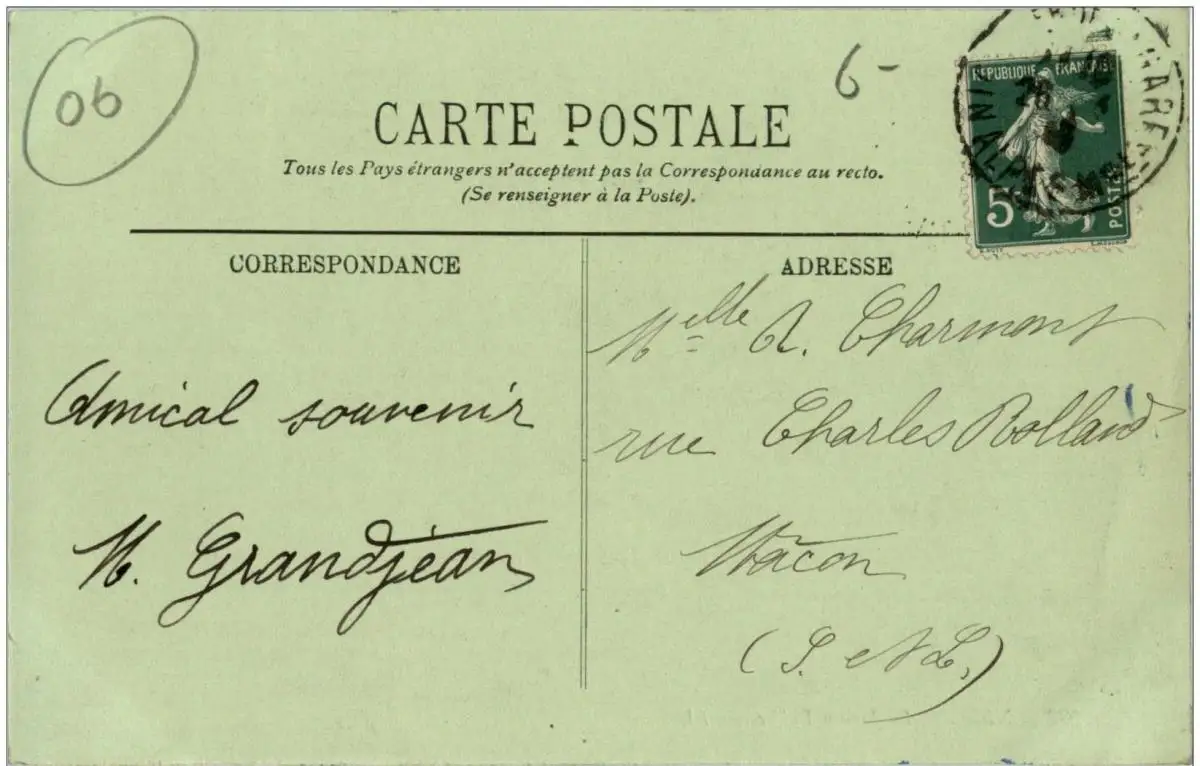 06
6-
CARTE POSTALE
Tous les Pays étrangers n'acceptent pas la Correspondance au recto.
(Se renseigner à la Poste).
REPUBLIQUE FRANÇAISE
5c
POSTES
CORRESPONDANCE
Amical souvenir
M. Grandjean
ADRESSE
Melle A. Charmont
rue Charles Rolland
Mâcon
(S. et L.)